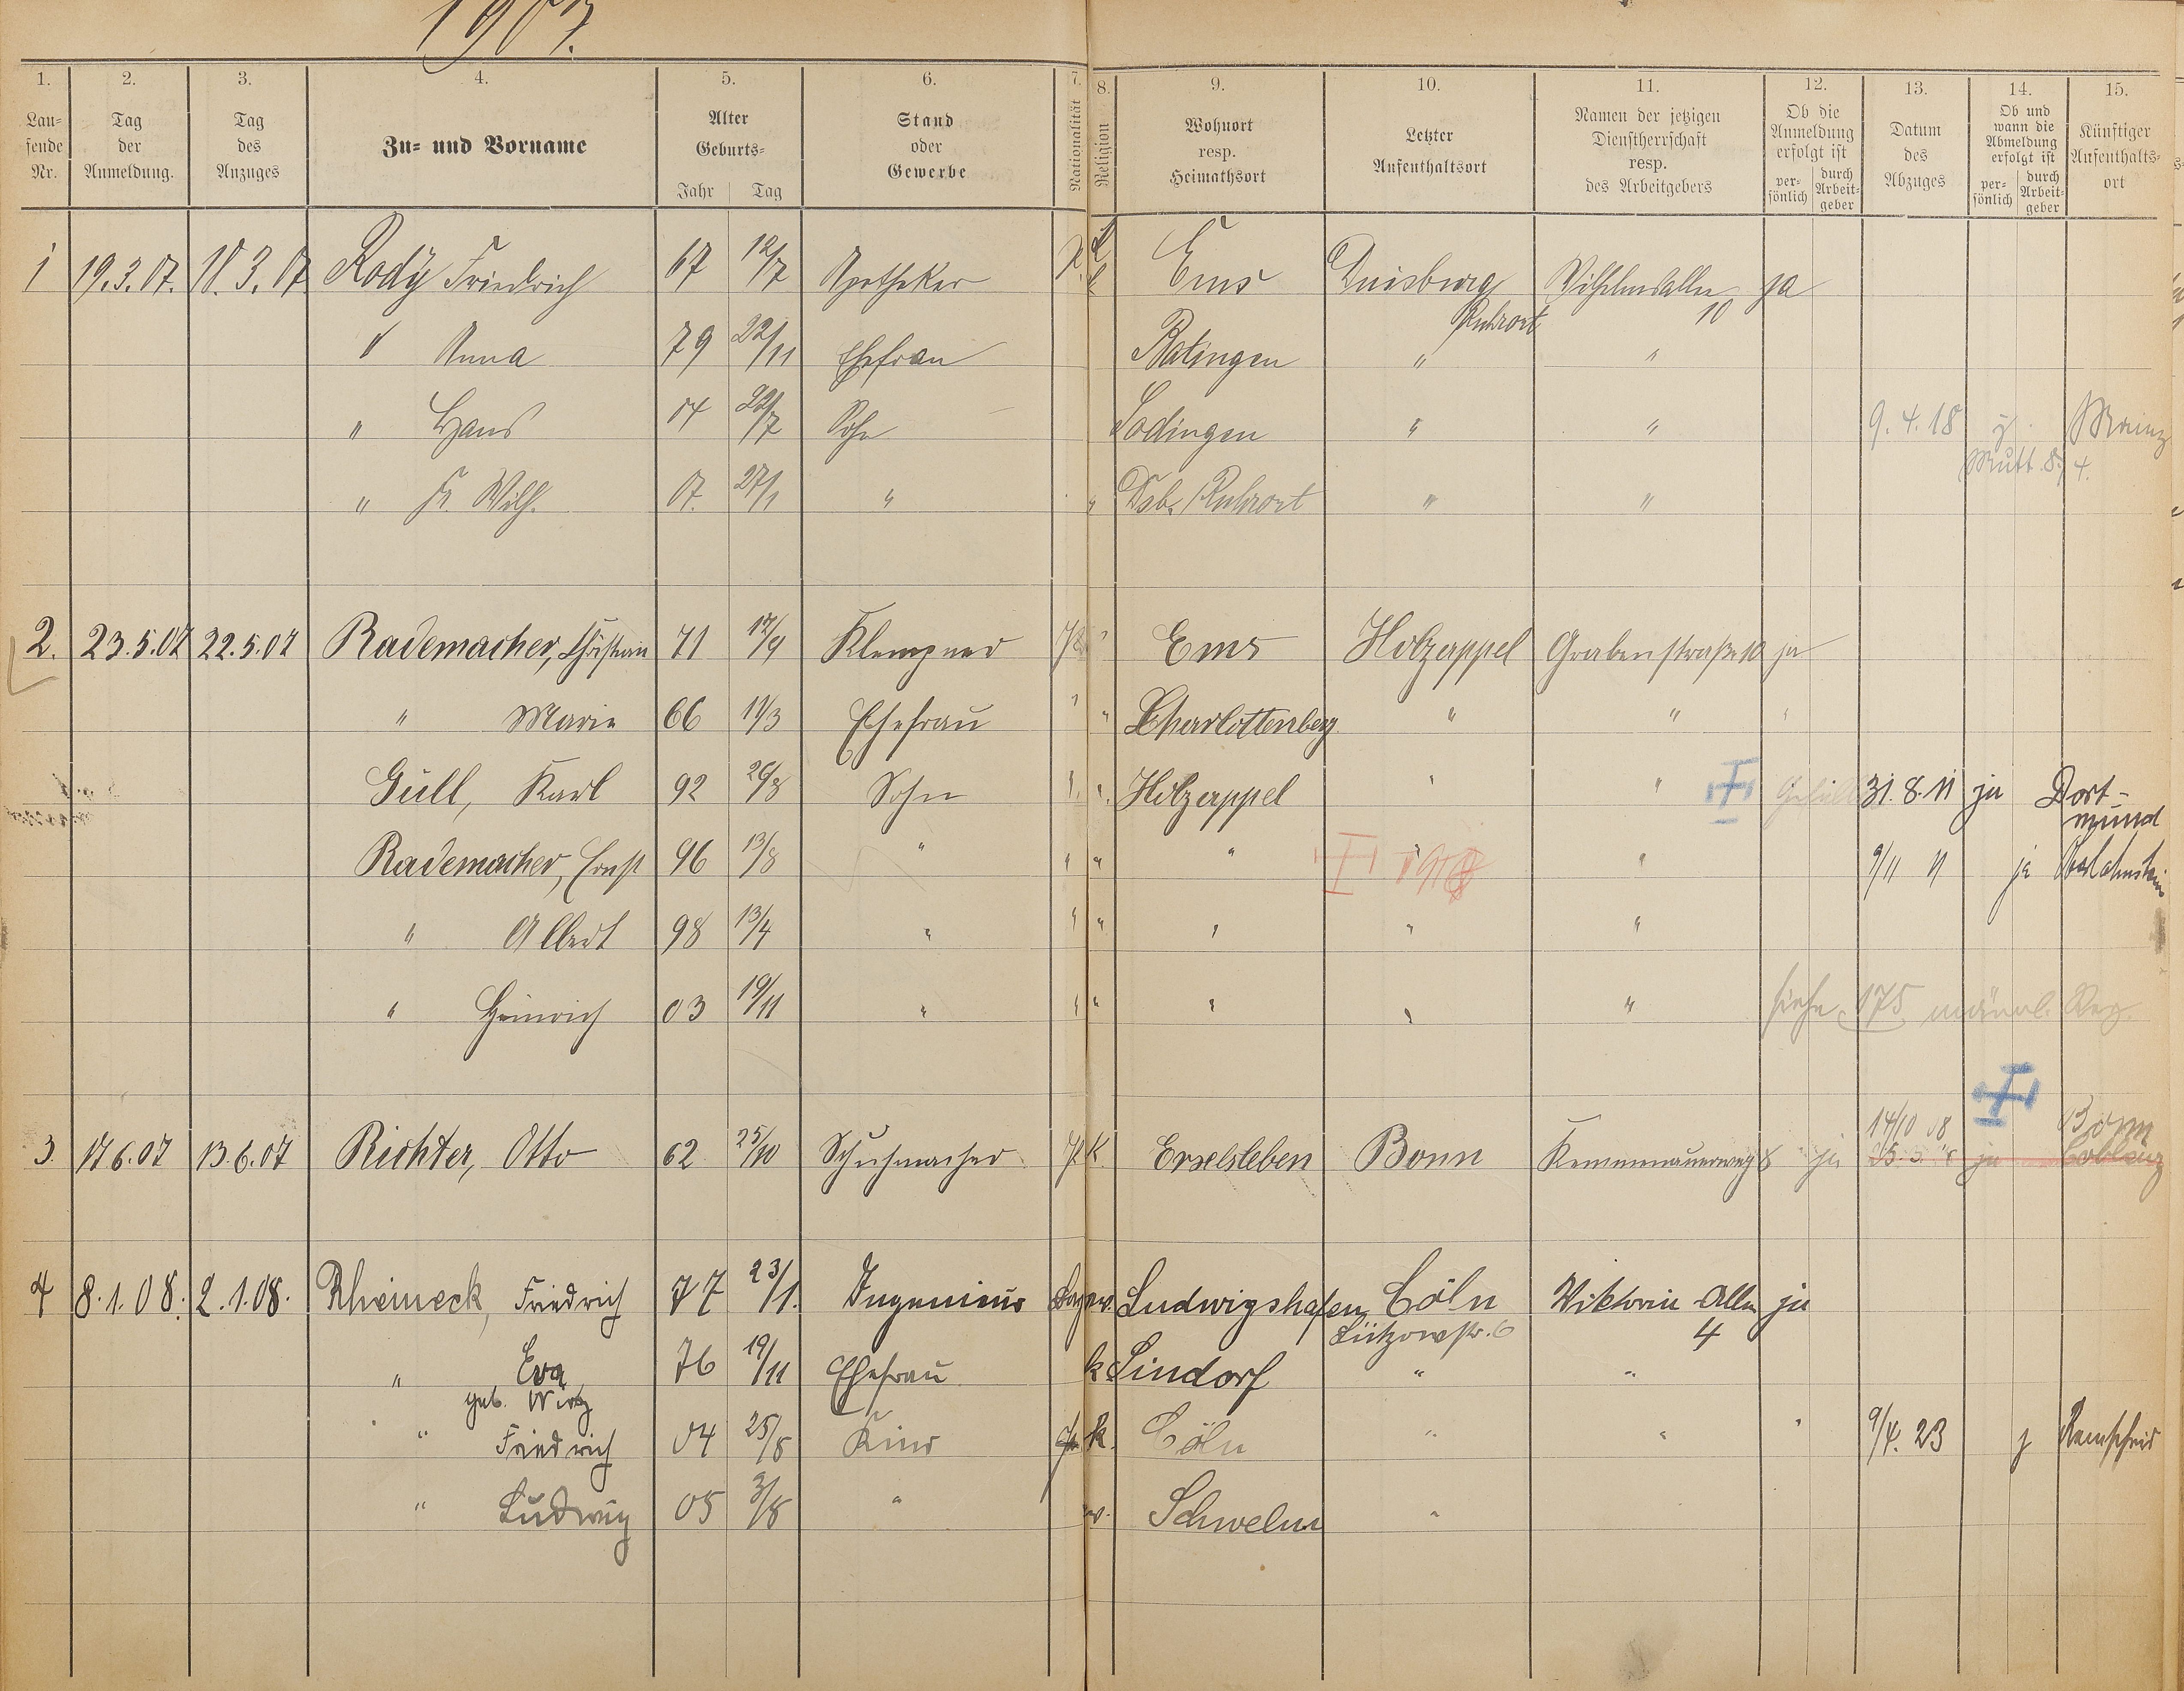 1907.
1. 2. 3. 4. 5. 6. 7. 8. 9. 10. 11. 12. 13. 14. 15.
Lau=
fende
Nr.
Tag
der
Anmeldung.
Tag
des
Anzuges
Zu= und Vorname
Alter
Geburts=
Jahr Tag
Stand
oder
Gewerbe
Nationalität
Religion
Wohnort
resp.
Heimathsort
Letzter
Aufenthaltsort
Namen der jetzigen
Dienstherrschaft
resp.
des Arbeitgebers
Ob die
Anmeldung
erfolgt ist
per=
sönlich
durch
Arbeit=
geber
Datum
des
Abzuges
Ob und
wann die
Abmeldung
erfolgt ist
per=
sönlich
durch
Arbeit=
geber
Künftiger
Aufenthalts=
ort
1 19.3.07. 18.3.07 Rody Friedrich 67 12/7 Apotheker Ems Duisburg Wilhelmsallee ja
Ruhrort 10
" Anna 79 22/11 Ehefrau Ratingen " "
" Hans 04 22/7 Sohn Sodingen " " 9.4.18 Mainz
Mutt. 8/4.
" Fr. Wilh. 07. 27/1 " " Dsb. Ruhrort " "
2. 23.5.07 22.5.07 Rademacher, Christian 71 17/9 Klempner " Ems Holzappel Grabenstraße 10 ja
" Marie 66 11/3 Ehefrau " " Charlottenberg " " "
Güll, Karl 92 26/8 Sohn " " Holzappel " " 31.8.11 ja Dort-
mund
Rademacher, Ernst 96 13/8 " " " " " " 9/11 11 ja Oberlahnstein
" Albert 98 13/4 " " " " " "
" Heinrich 03 19/11 " " " " " " siehe 175 männl. Reg.
14/10 08 Bonn
3. 17.6.07 13.6.07 Richter, Otto 62 25/10 Schuhmacher K Erxleben Bonn Kemmenauerweg 8 ja ja Coblenz
4 8.1.08. 2.1.08. Rheineck, Friedrich 77 23/1. Ingenieur Bay ev. Ludwigshafen Cöln Viktoria Allee ja
Lützowstr. 6 4
" Eva 76 19/11 Ehefrau k Sindorf " "
geb. Wirtz
" Friedrich 04 25/8 Kind k. Cöln " " " 9/4. 23 j Remscheid
" Ludwig 05 3/8 " ev. Schwelm "